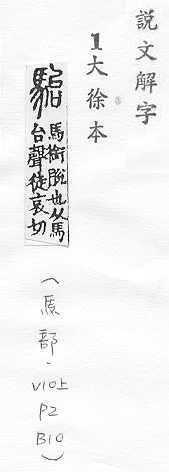 説文解字
1大徐本
駘 馬銜脫也从馬
台聲徒哀切
(馬部.
V10上
P2
B10)